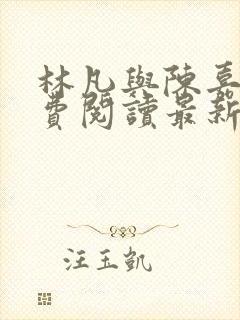 林凡與陳喜
費閱讀最新
汪玉凱